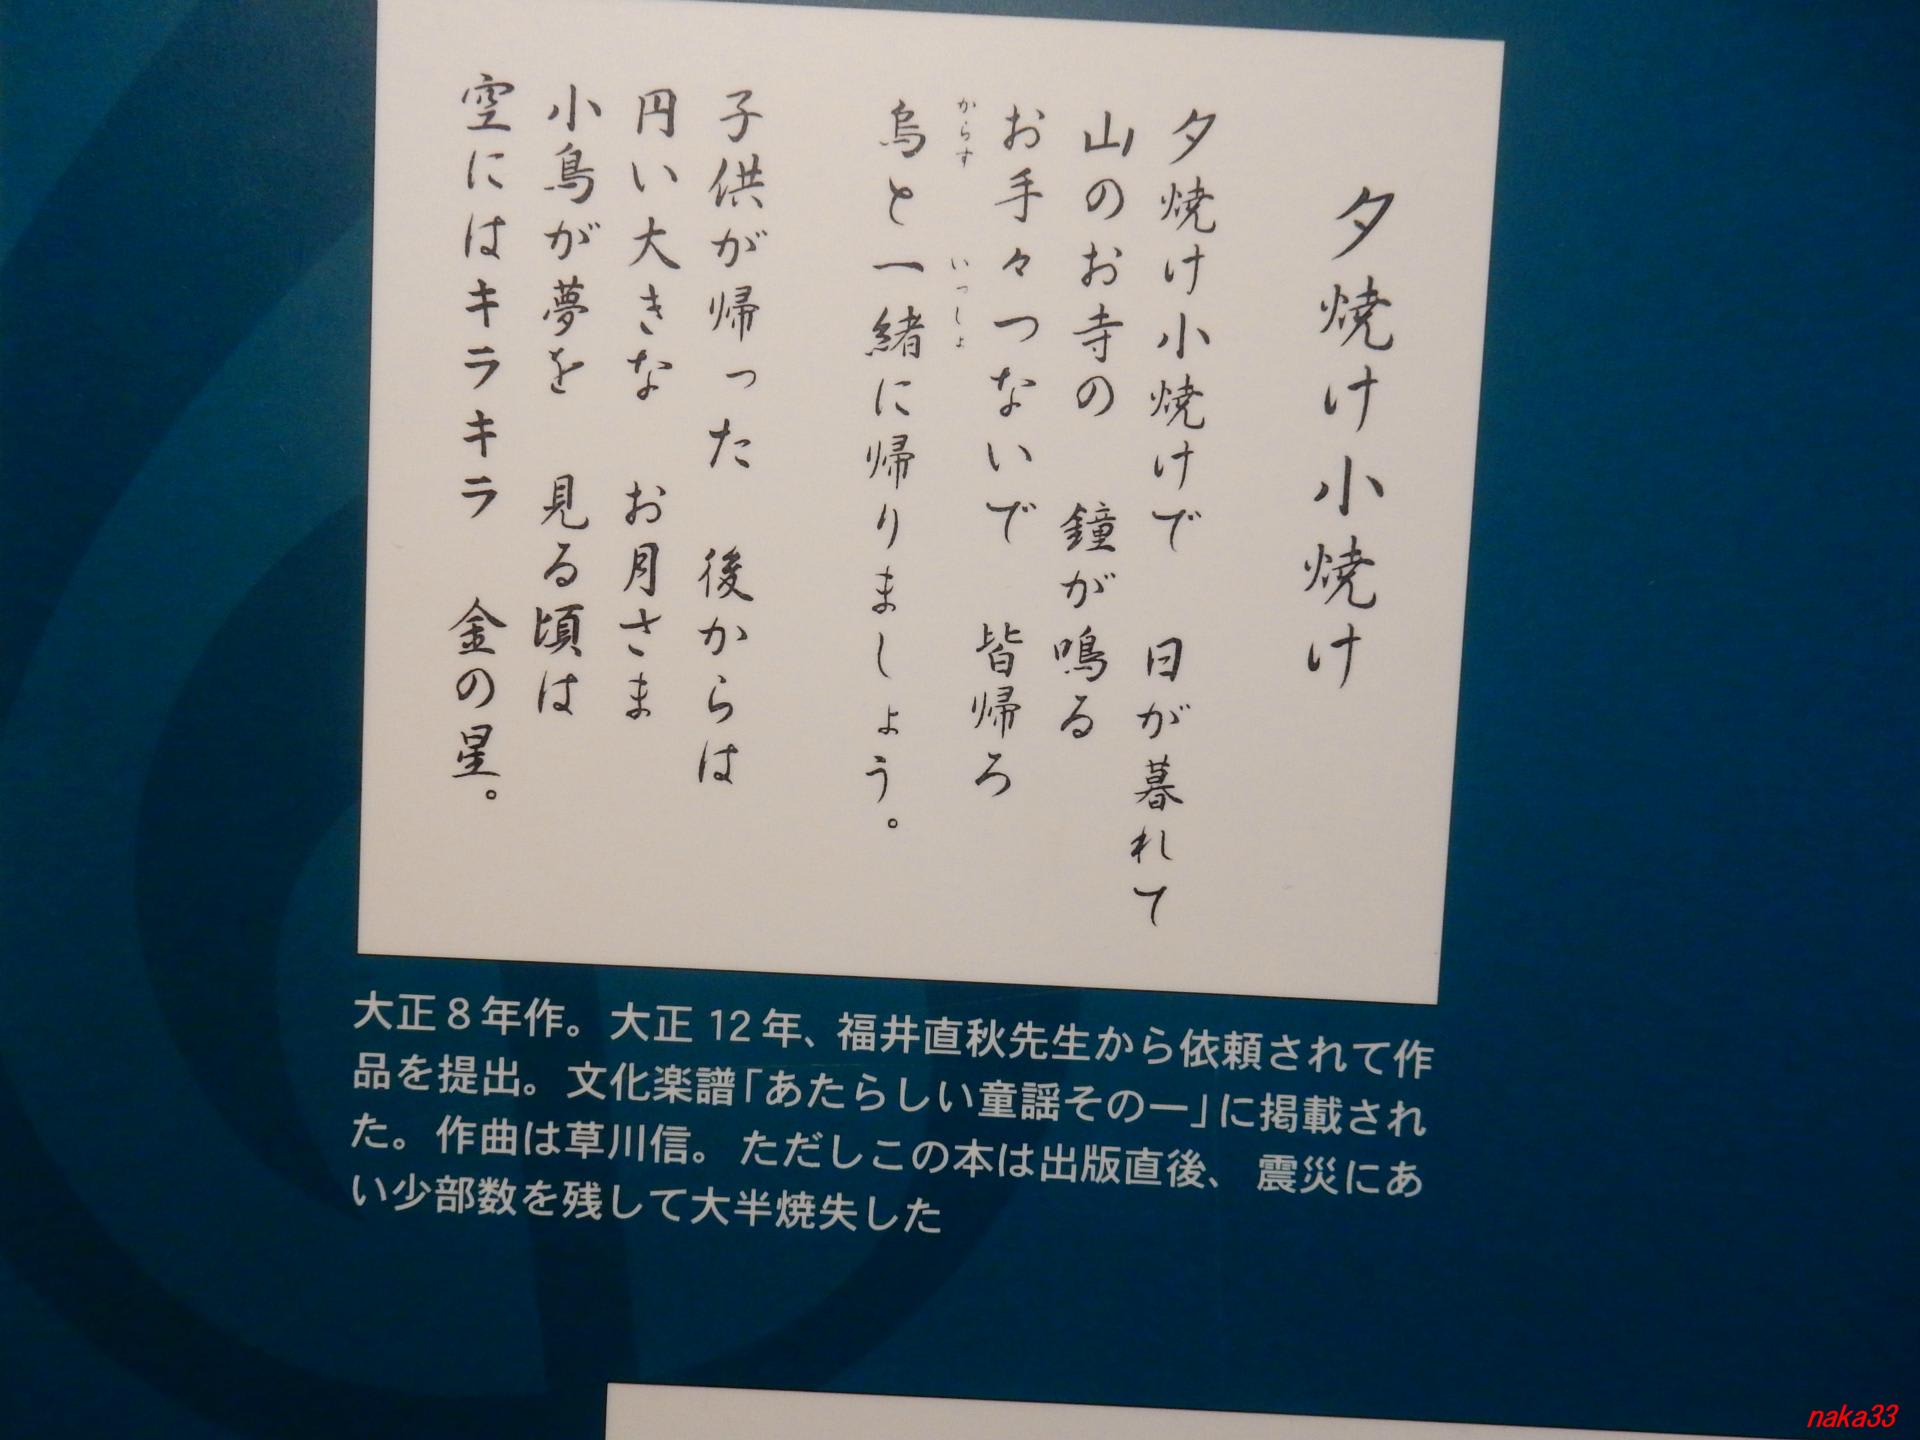 夕焼け小焼け
夕焼け小焼けで 日が暮れて
山のお寺の 鐘が鳴る
お手々つないで 皆帰ろ
からす いっしょ
烏と一緒に帰りましょう。
子供が帰った 後からは
円い大きな お月さま
小鳥が夢を 見る頃は
空にはキラキラ 金の星。
大正8年作。大正12年、福井直秋先生から依頼されて作
品を提出。文化楽譜「あたらしい童謡その一」に掲載され
た。作曲は草川信。ただしこの本は出版直後、震災にあ
い少部数を残して大半焼失した
naka33